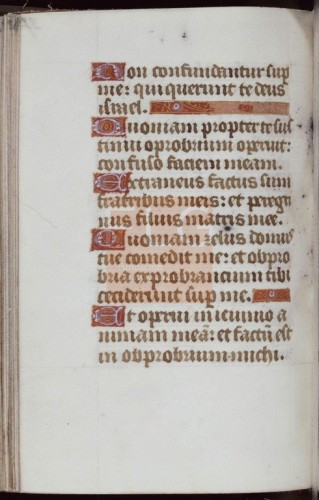 Non confundantur sup
me: qui querunt te deus
israel.
Quoniam propter te sus
tinui oprobrium operuit:
confusio faciem meam.
Extraneus factus sum
fratribus meis: et peregri
nus filius matris mee.
Quoniam zelus domus
tue comedit me: et obpro
bria exprobrancium tibi
ceciderunt sup me.
Et operui in ieiunio a
nimam meā: et factū est
in obprobrium michi.